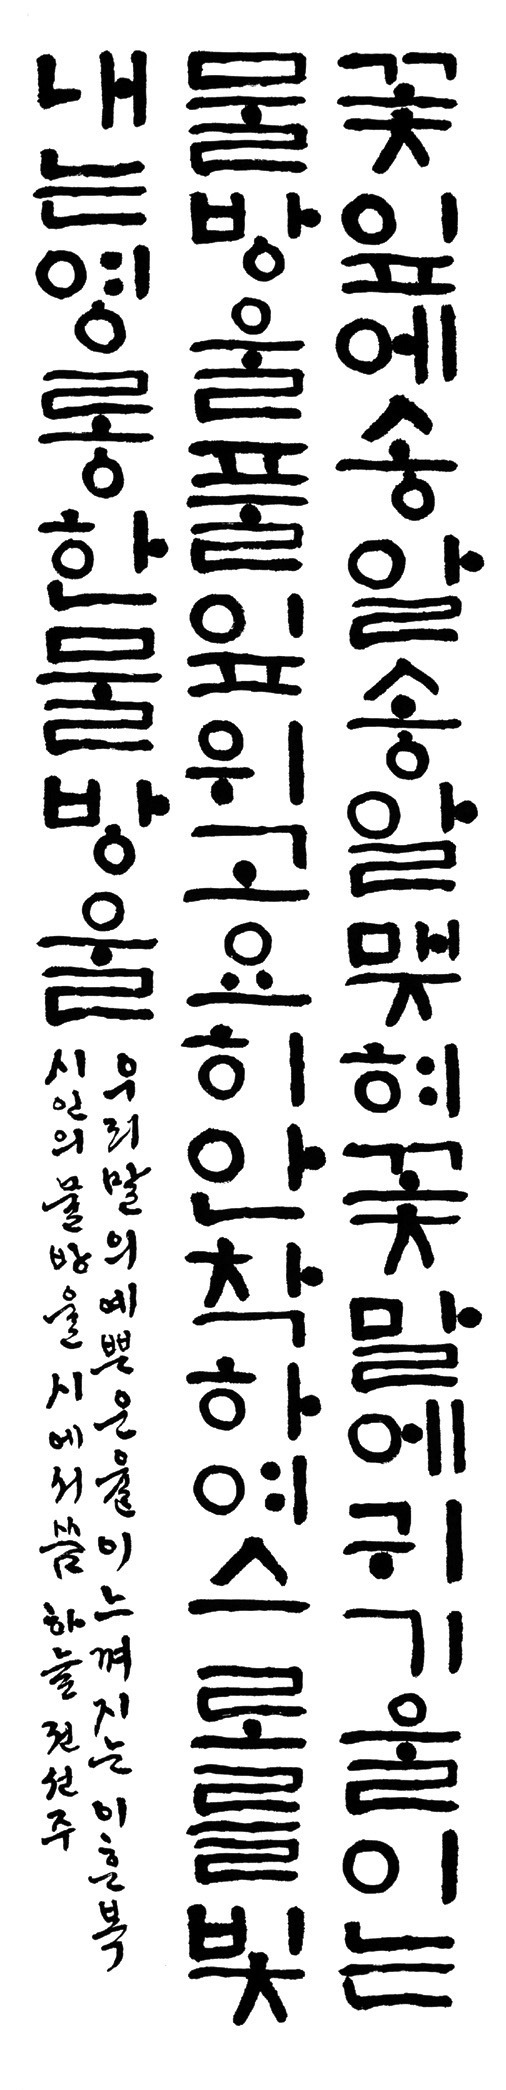 꽃잎에송알송알맺혀꽃말에귀기울이는
물방울풀잎위고요히안착하여스로를빛
내는영롱한물방울
우리말의예쁜운율이느껴지는이흔복
시인의물방울시에서씀 하늘전선주